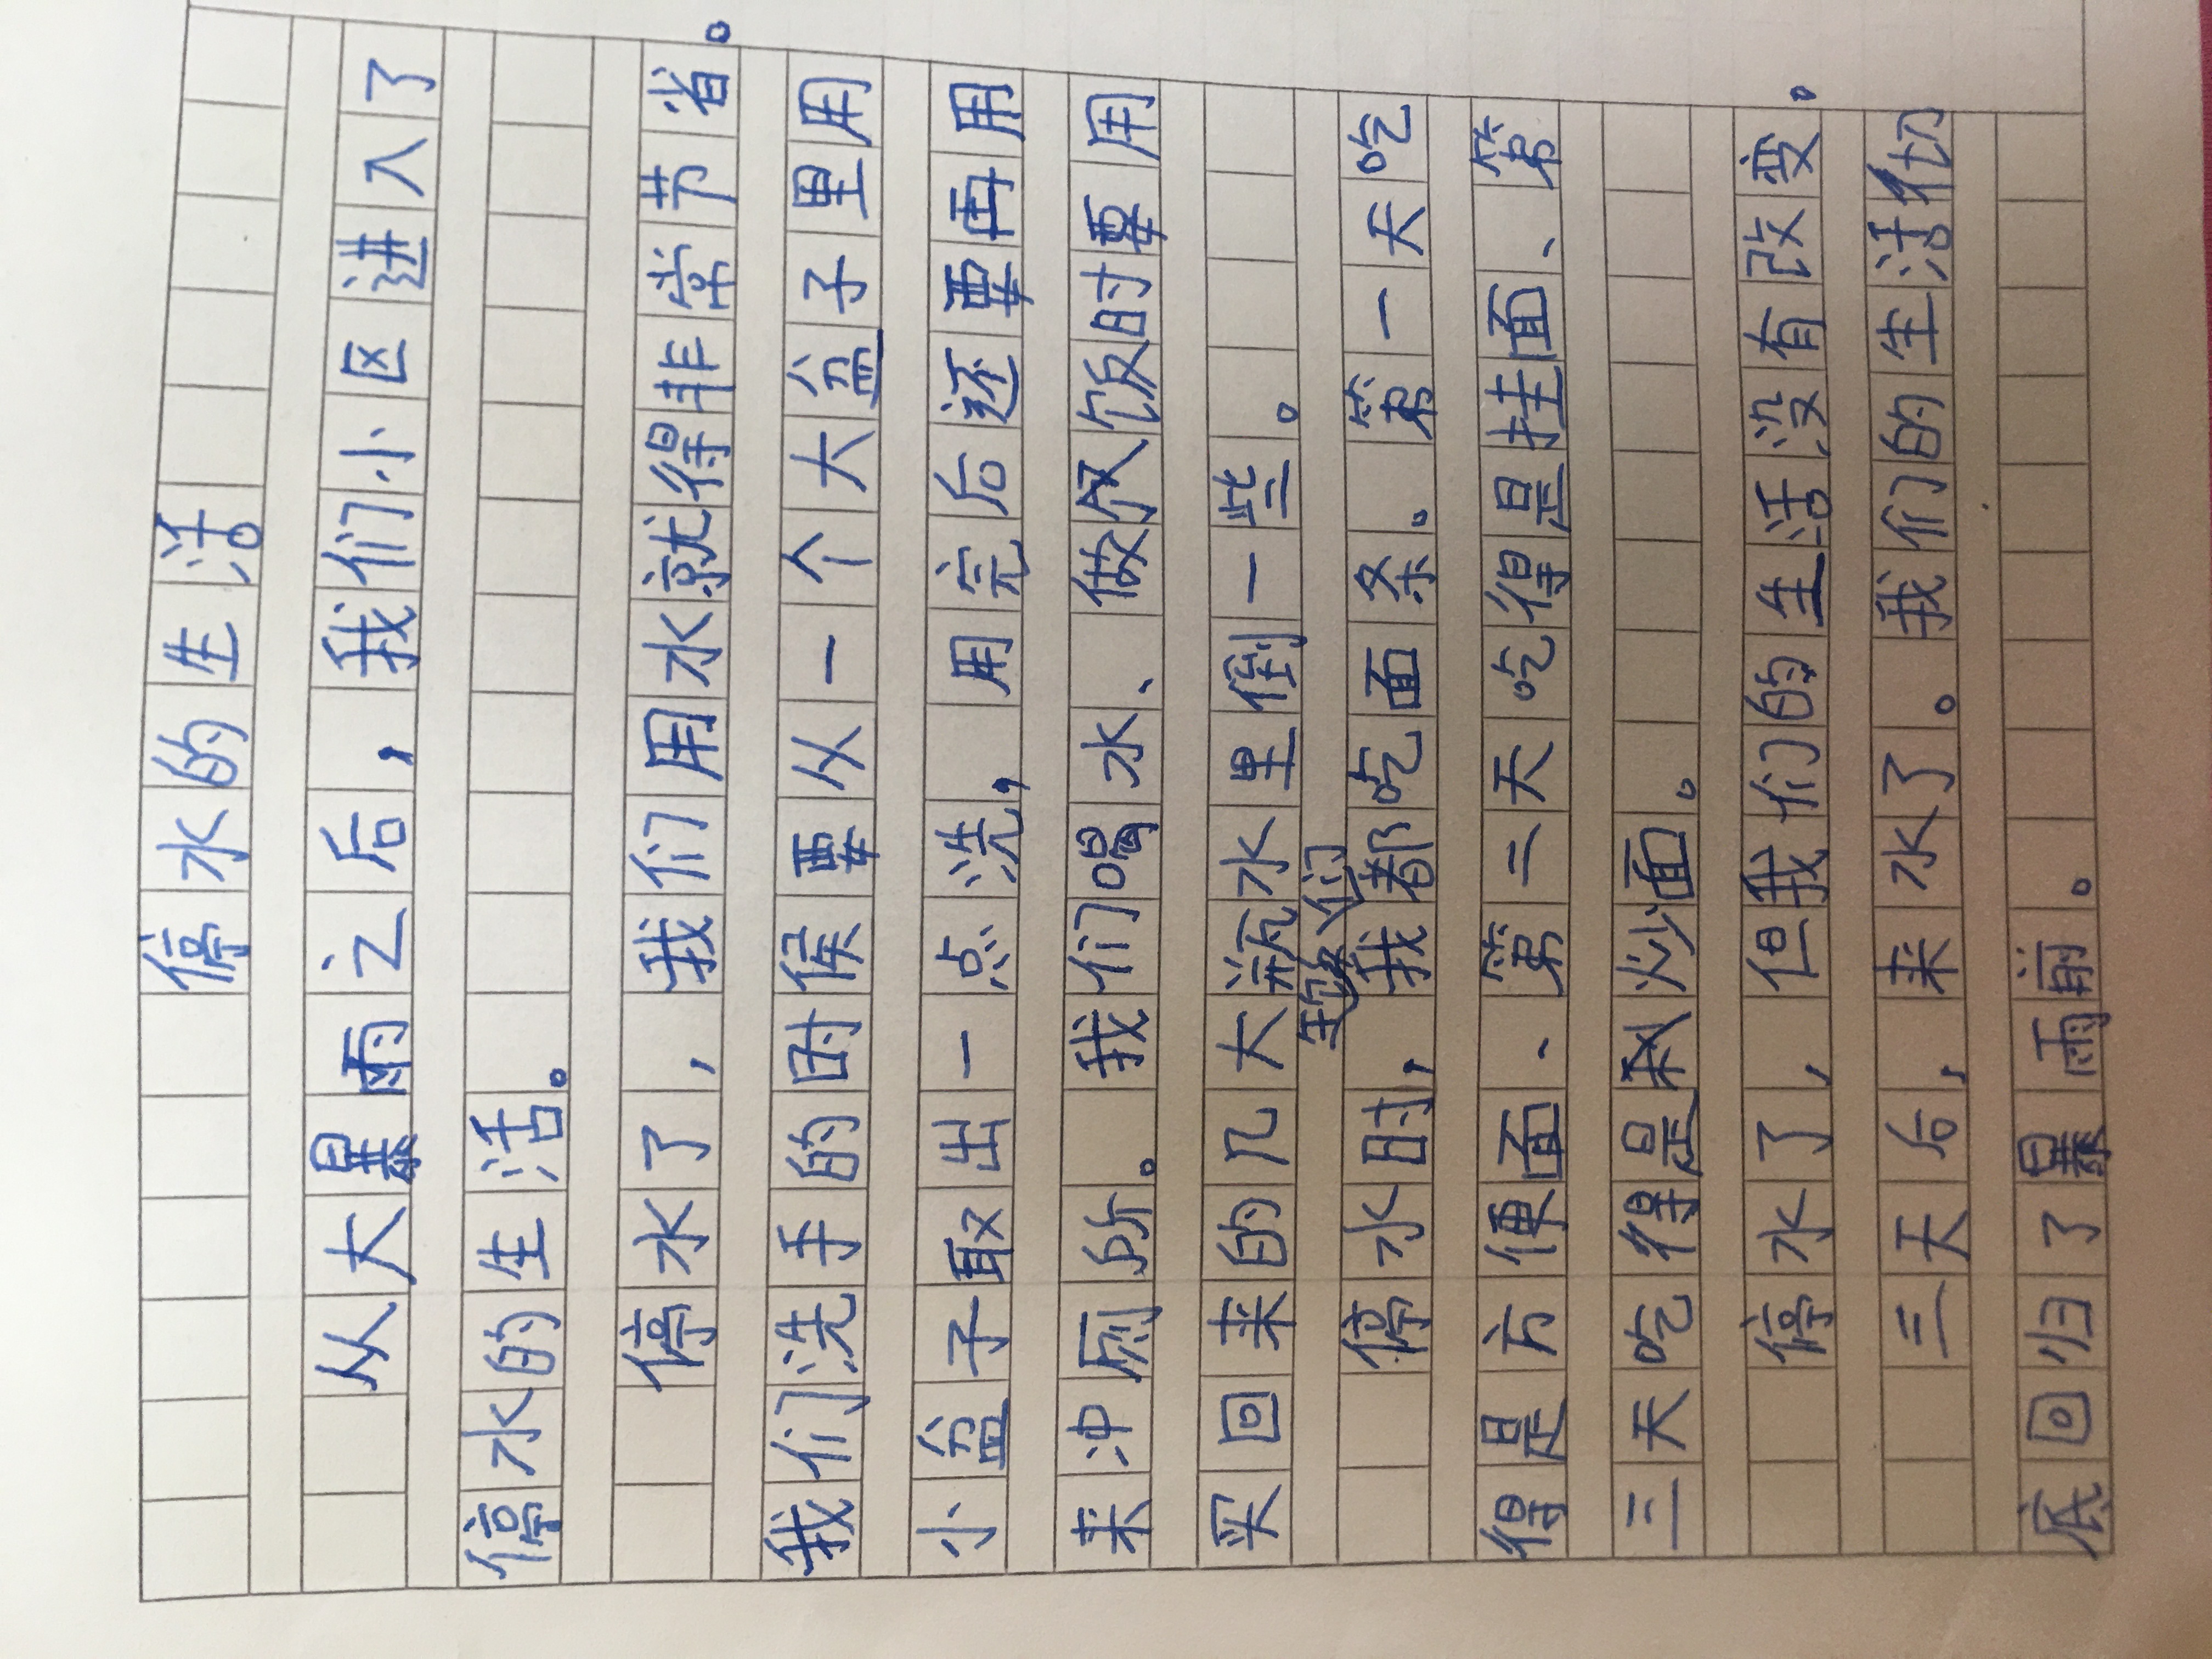 停水的生活
从大暴雨之后，我们小区进入了
停水的生活。
停水了，我们用水就得非常节省。
我们洗手的时侯要从一个大盆子里用
小盆子取出一点洗，用完后还要再用
来冲厕所。我们喝水、做饭时要用
买回来的几大瓶水里倒一些。
停水时，我们都吃面条。第一天吃
得是方便面、第二天吃得是挂面、第
三天吃得是炒面。
停水了，但我们的生活没有改变。
三天后，来水了。我们的生活彻
底回归了暴雨前。